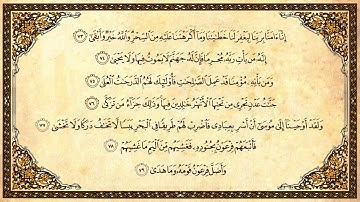 إِنَّا ءَامَنَّا بِرَبِّنَا لِيَغْفِرَ لَنَا خَطَٰيَٰنَا وَمَآ أَكْرَهْتَنَا عَلَيْهِ مِنَ ٱلسِّحْرِ وَٱللَّهُ خَيْرٌ وَأَبْقَىٰٓ ٧٣
إِنَّهُۥ مَن يَأْتِ رَبَّهُۥ مُجْرِمًا فَإِنَّ لَهُۥ جَهَنَّمَ لَا يَمُوتُ فِيهَا وَلَا يَحْيَىٰ ٧٤
وَمَن يَأْتِهِۦ مُؤْمِنًا قَدْ عَمِلَ ٱلصَّٰلِحَٰتِ فَأُو۟لَٰٓئِكَ لَهُمُ ٱلدَّرَجَٰتُ ٱلْعُلَىٰ ٧٥
جَنَّٰتُ عَدْنٍ تَجْرِى مِن تَحْتِهَا ٱلْأَنْهَٰرُ خَٰلِدِينَ فِيهَا وَذَٰلِكَ جَزَآءُ مَن تَزَكَّىٰ ٧٦
وَلَقَدْ أَوْحَيْنَآ إِلَىٰ مُوسَىٰٓ أَنْ أَسْرِ بِعِبَادِى فَٱضْرِبْ لَهُمْ طَرِيقًا فِى ٱلْبَحْرِ يَبَسًا لَّا تَخَٰفُ دَرَكًا وَلَا تَخْشَىٰ ٧٧
فَأَتْبَعَهُمْ فِرْعَوْنُ بِجُنُودِهِۦ فَغَشِيَهُم مِّنَ ٱلْيَمِّ مَا غَشِيَهُمْ ٧٨
وَأَضَلَّ فِرْعَوْنُ قَوْمَهُۥ وَمَا هَدَىٰ ٧٩